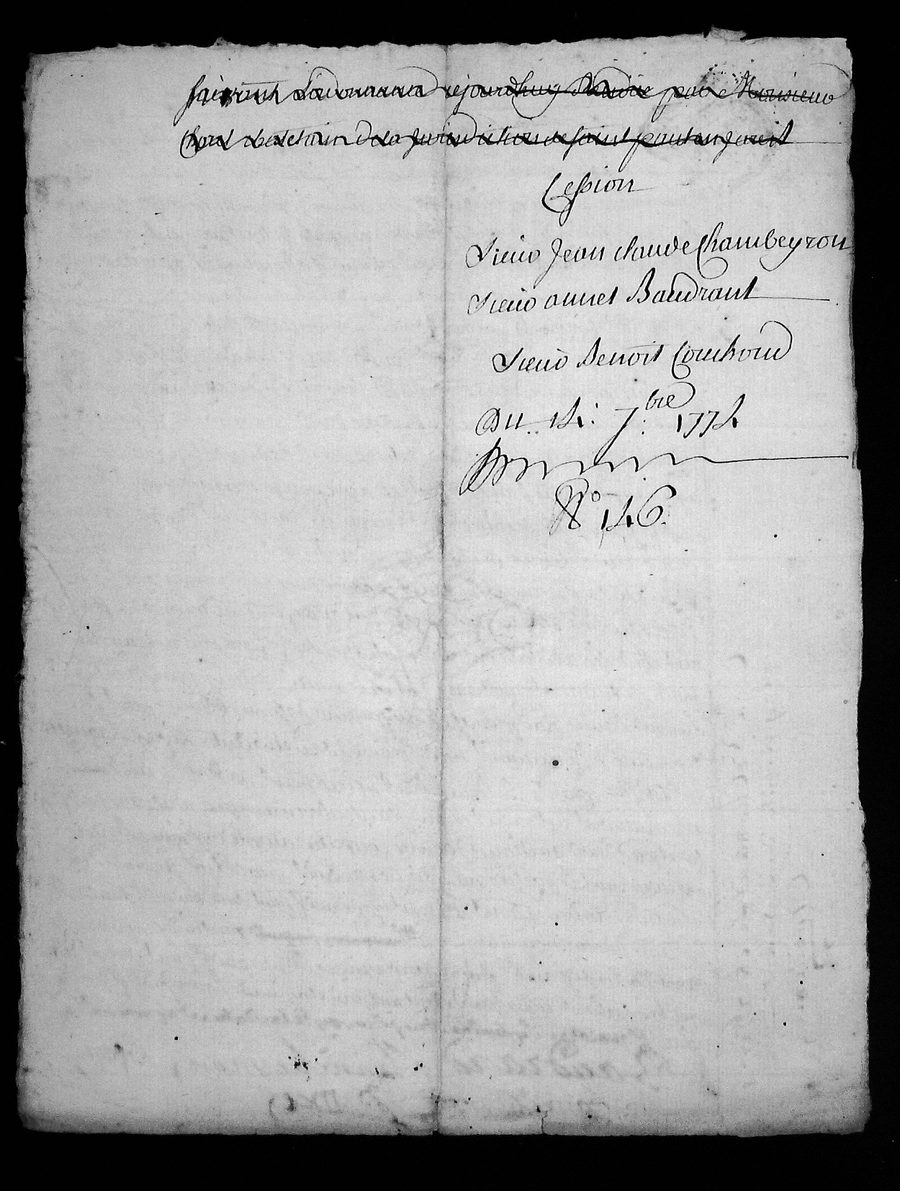 suivant Lordonnance rejourdhuy Rendue par Monsieur
chatelain de la Jurisdiction de saint paul en Jarest
Cession
Sieur Jean claude Chambeyron
Sieur annet Baudrant
Sieur Benoit Couchoud
Du 14: 7.bre 1774
No 146.